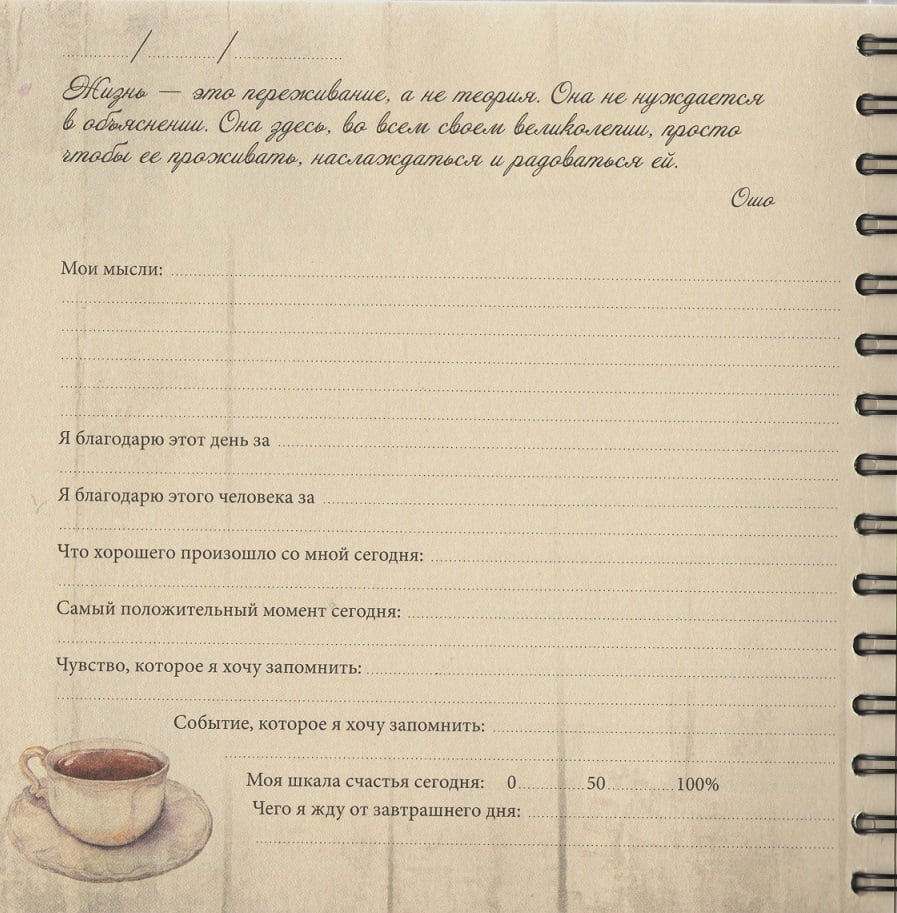 ............/............/....................
Жизнь — это переживание, а не теория. Она не нуждается
в объяснении. Она здесь, во всем своем великолепии, просто
чтобы ее проживать, наслаждаться и радоваться ей.
Ошо
Мои мысли:
Я благодарю этот день за
Я благодарю этого человека за
Что хорошего произошло со мной сегодня:
Самый положительный момент сегодня:
Чувство, которое я хочу запомнить:
Событие, которое я хочу запомнить:
Моя шкала счастья сегодня: 0..............50..............100%
Чего я жду от завтрашнего дня: